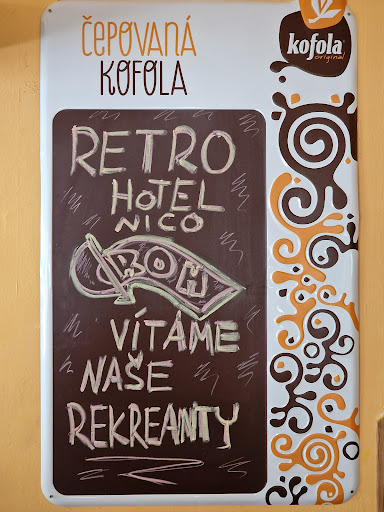 ČEPOVANÁ
KOFOLA
kofola
original
RETRO
HOTEL
NICO
ROH
VÍTÁME
NAŠE
REKREANTY
kofola